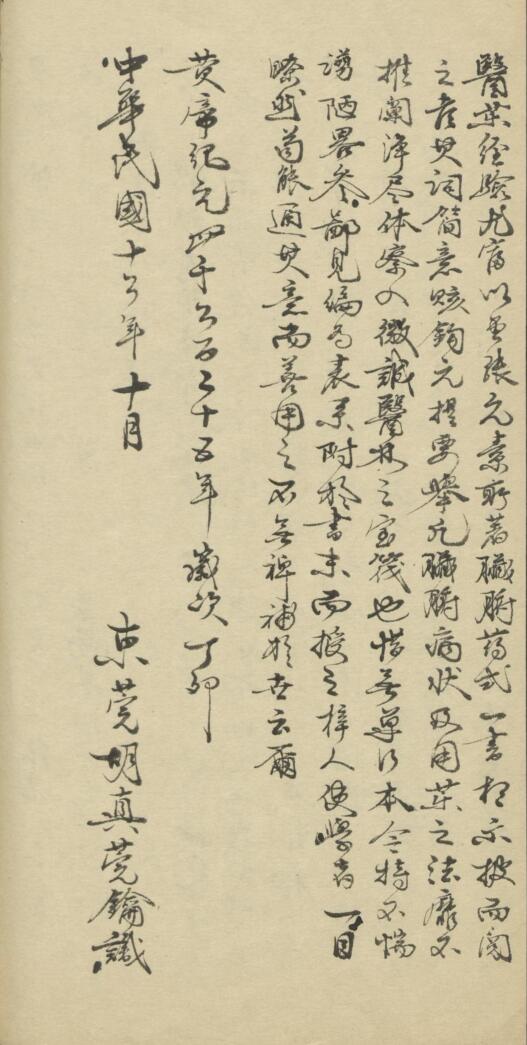 醫藥經驗尤富以其張元素所著臟腑藥式一書相示披而閱
之者其詞簡意賅鈎元提要舉凡臟腑病狀及用藥之法靡不
推闡淨尽体察入微誠醫林之宝筏也惜無單行本今特不惴
譾陋畧参鄙見編為表系附於書末而授之梓人使學者一目
瞭然苟能通其意而善用之不無裨補於世云爾
黃帝紀元四千六百二十五年歲次丁卯
中華民國十六年十月
東莞胡真莞鑰識